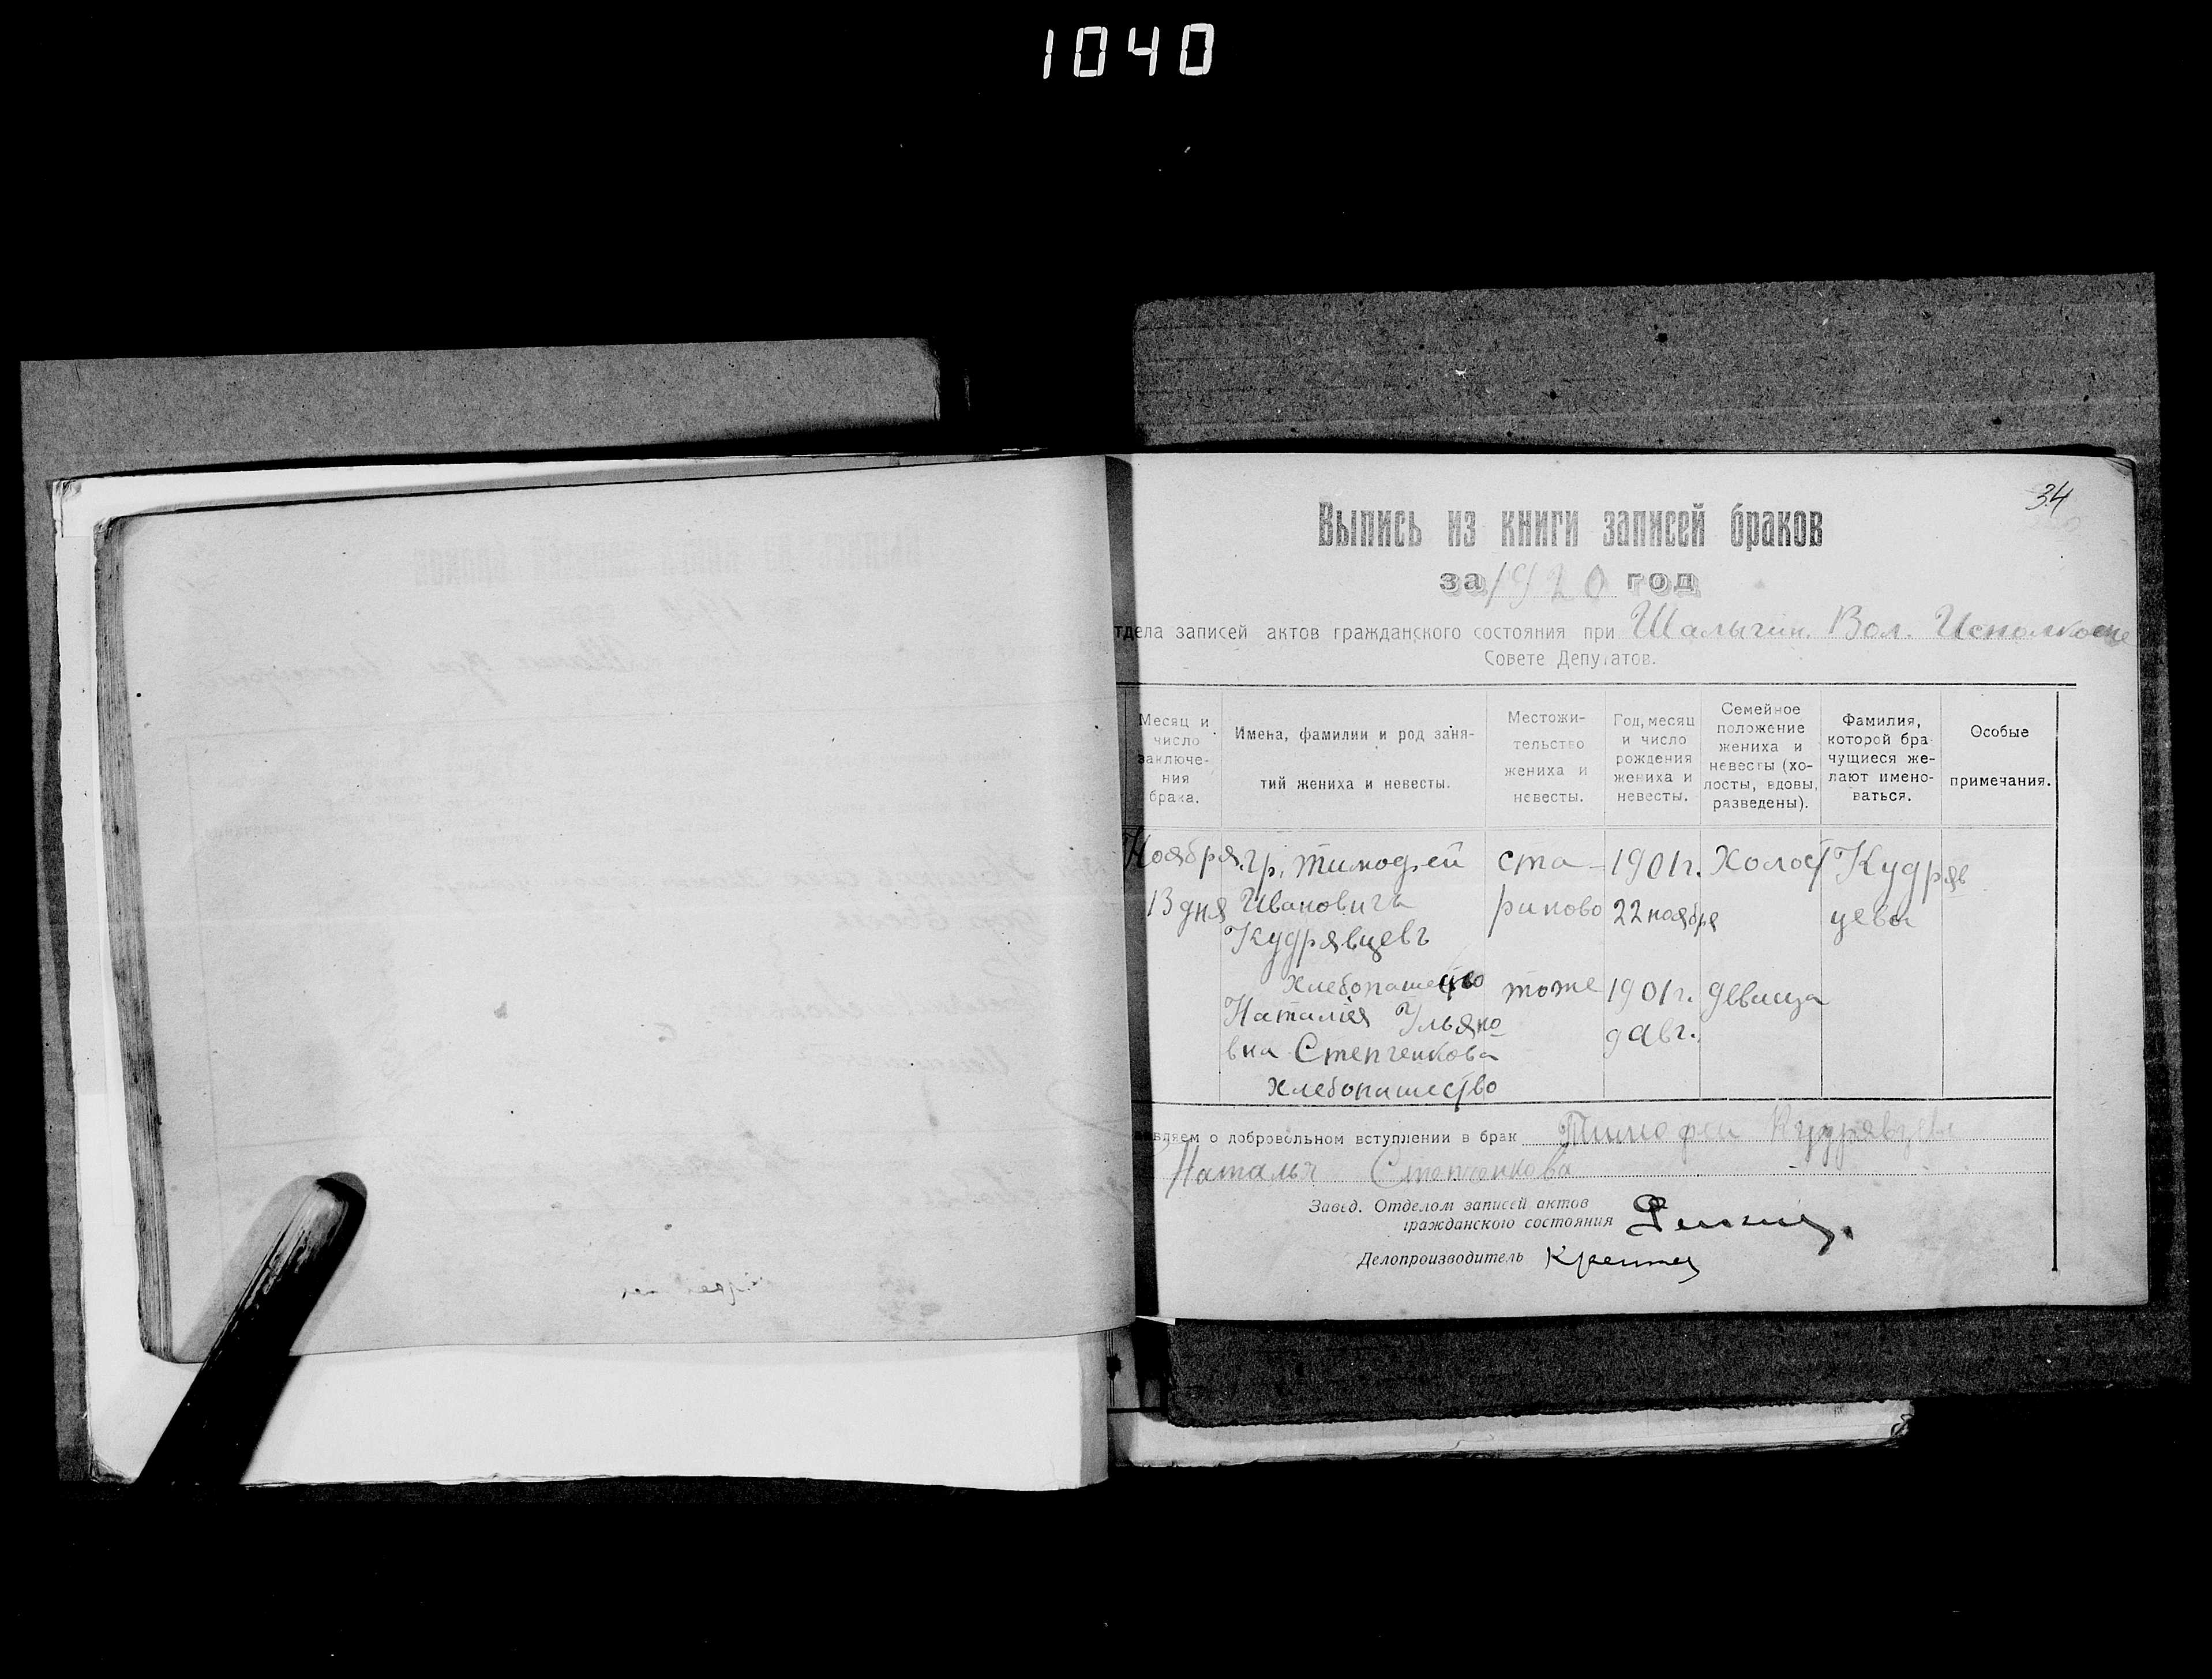 1040
34
Выпись из книги записей браков
за 1920 год
тдела записей актов гражданского состояния при Шалыгин. Вол. Исполкоме
Совете Депутатов.
Месяц и число заключения брака.
Имена, фамилии и род заня-
тий жениха и невесты.
Местожи-
тельство
жениха и
невесты.
Год, месяц
и число
рождения
жениха и
невесты.
Семейное
положение
жениха и
невесты (хо-
лосты, вдовы,
разведены).
Фамилия,
которой бра-
чущиеся же-
лают имено-
ваться.
Особые
примечания.
Ноября
13 дня
гр. Тимофей
Ивановичъ
Кудрявцевъ
хлебопашество
Наталия Ульяно
вна Степченкова
хлебопашество
ста-
риково
тоже
1901г.
22 ноября
1901г.
9 авг.
Холост
девица
Кудряв
цевы
вляем о добровольном вступлении в брак Тимофей Кудрявцев
Наталья Степченкова
Завед. Отделом записей актов
гражданского состояния
Делопроизводитель